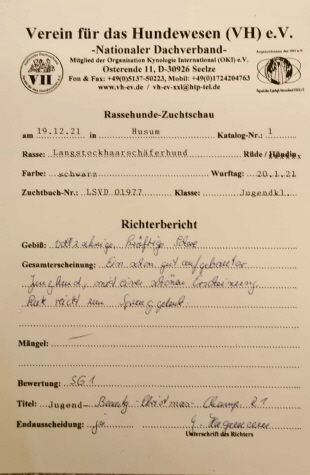 Verein für das Hundewesen (VH) e.V.
-Nationaler Dachverband-
Mitglied der Organisation Kynologie International (OKI) e.V.
Osterende 11, D-30926 Seelze
Fon & Fax: +49(0)5137-50223, Mobil: +49(0)1724204763
www.vh-ev.de / vh-ev-xxl@htp-tel.de
VH
Rassehunde-Zuchtschau
am 19.12.21 in Husum Katalog-Nr.: 1
Rasse: Langstockhaarschäferhund Rüde / Hündin
Farbe: schwarz Wurftag: 20.1.21
Zuchtbuch-Nr.: LSVD 01977 Klasse: Jugendkl.
Richterbericht
Gebiß: vollzahnige, kräftige
Gesamterscheinung: Ein schon gut aufgebauter
Junghund, mit einer schönen Erscheinung
Mängel: —
Bewertung: SG1
Titel: Jugend- Beauty-Christmas-Champ. 21
Endausscheidung: ja
Unterschrift des Richters